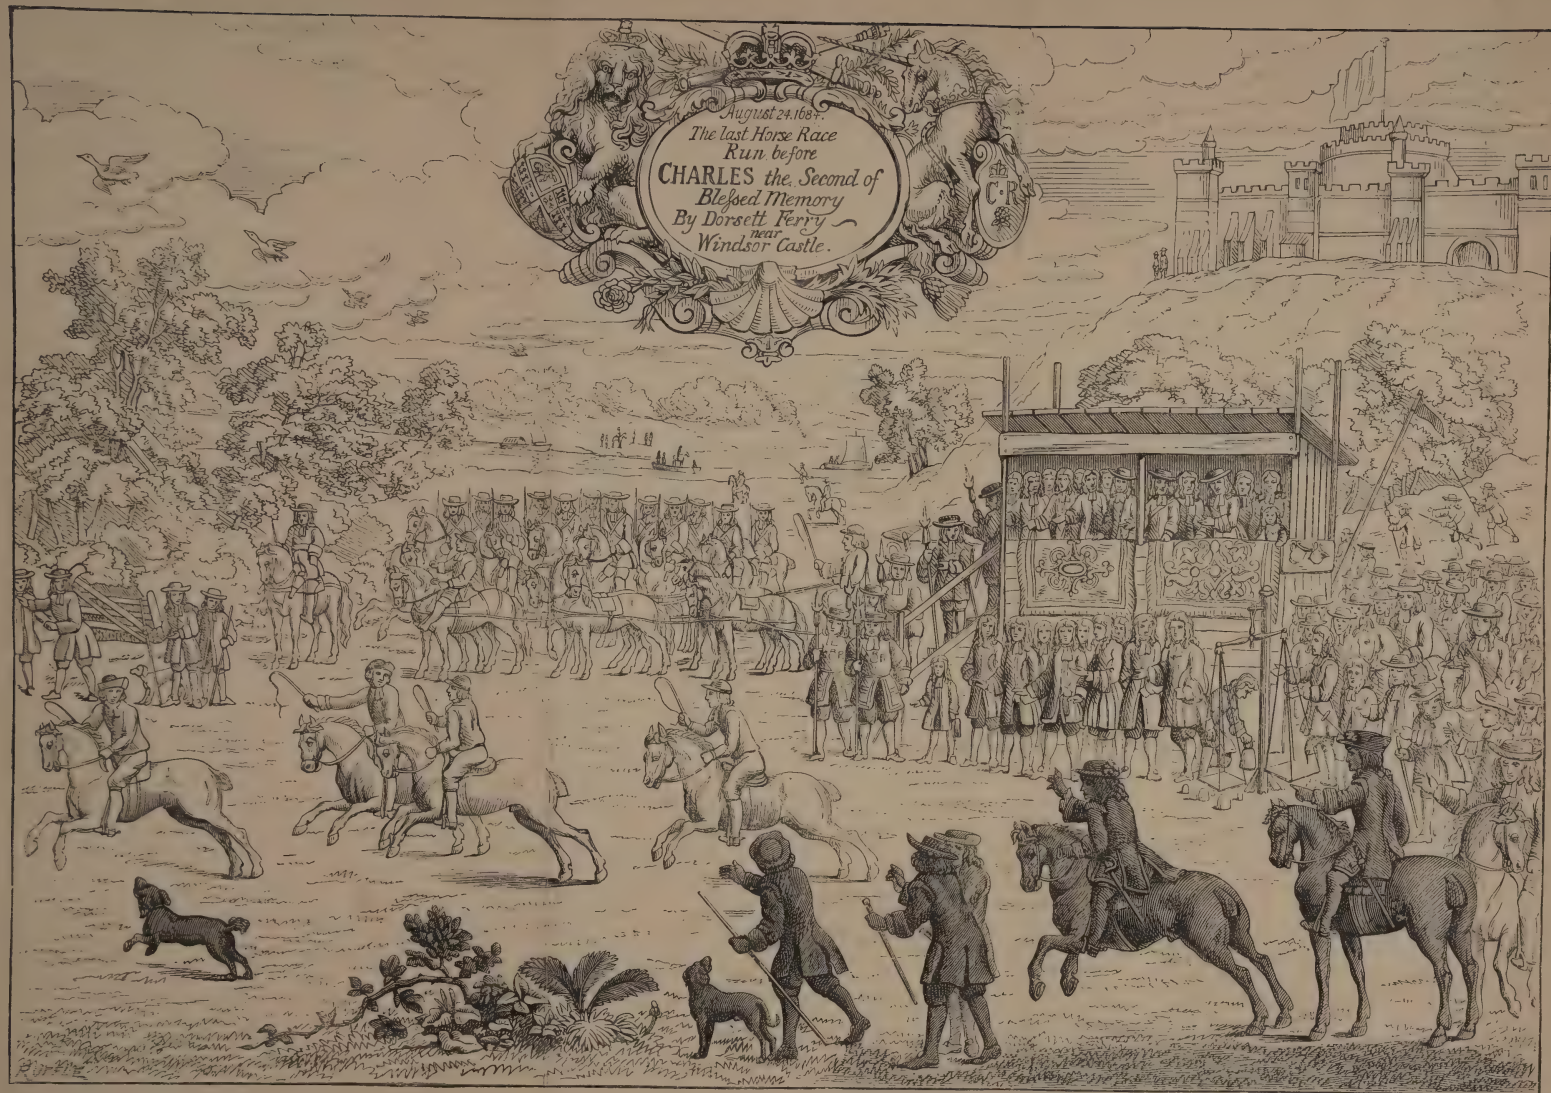 August 24. 1684.
The last Horse Race
Run before
CHARLES the Second of
Bleſsed Memory
By Dorsett Ferry
near
Windsor Castle.
C R